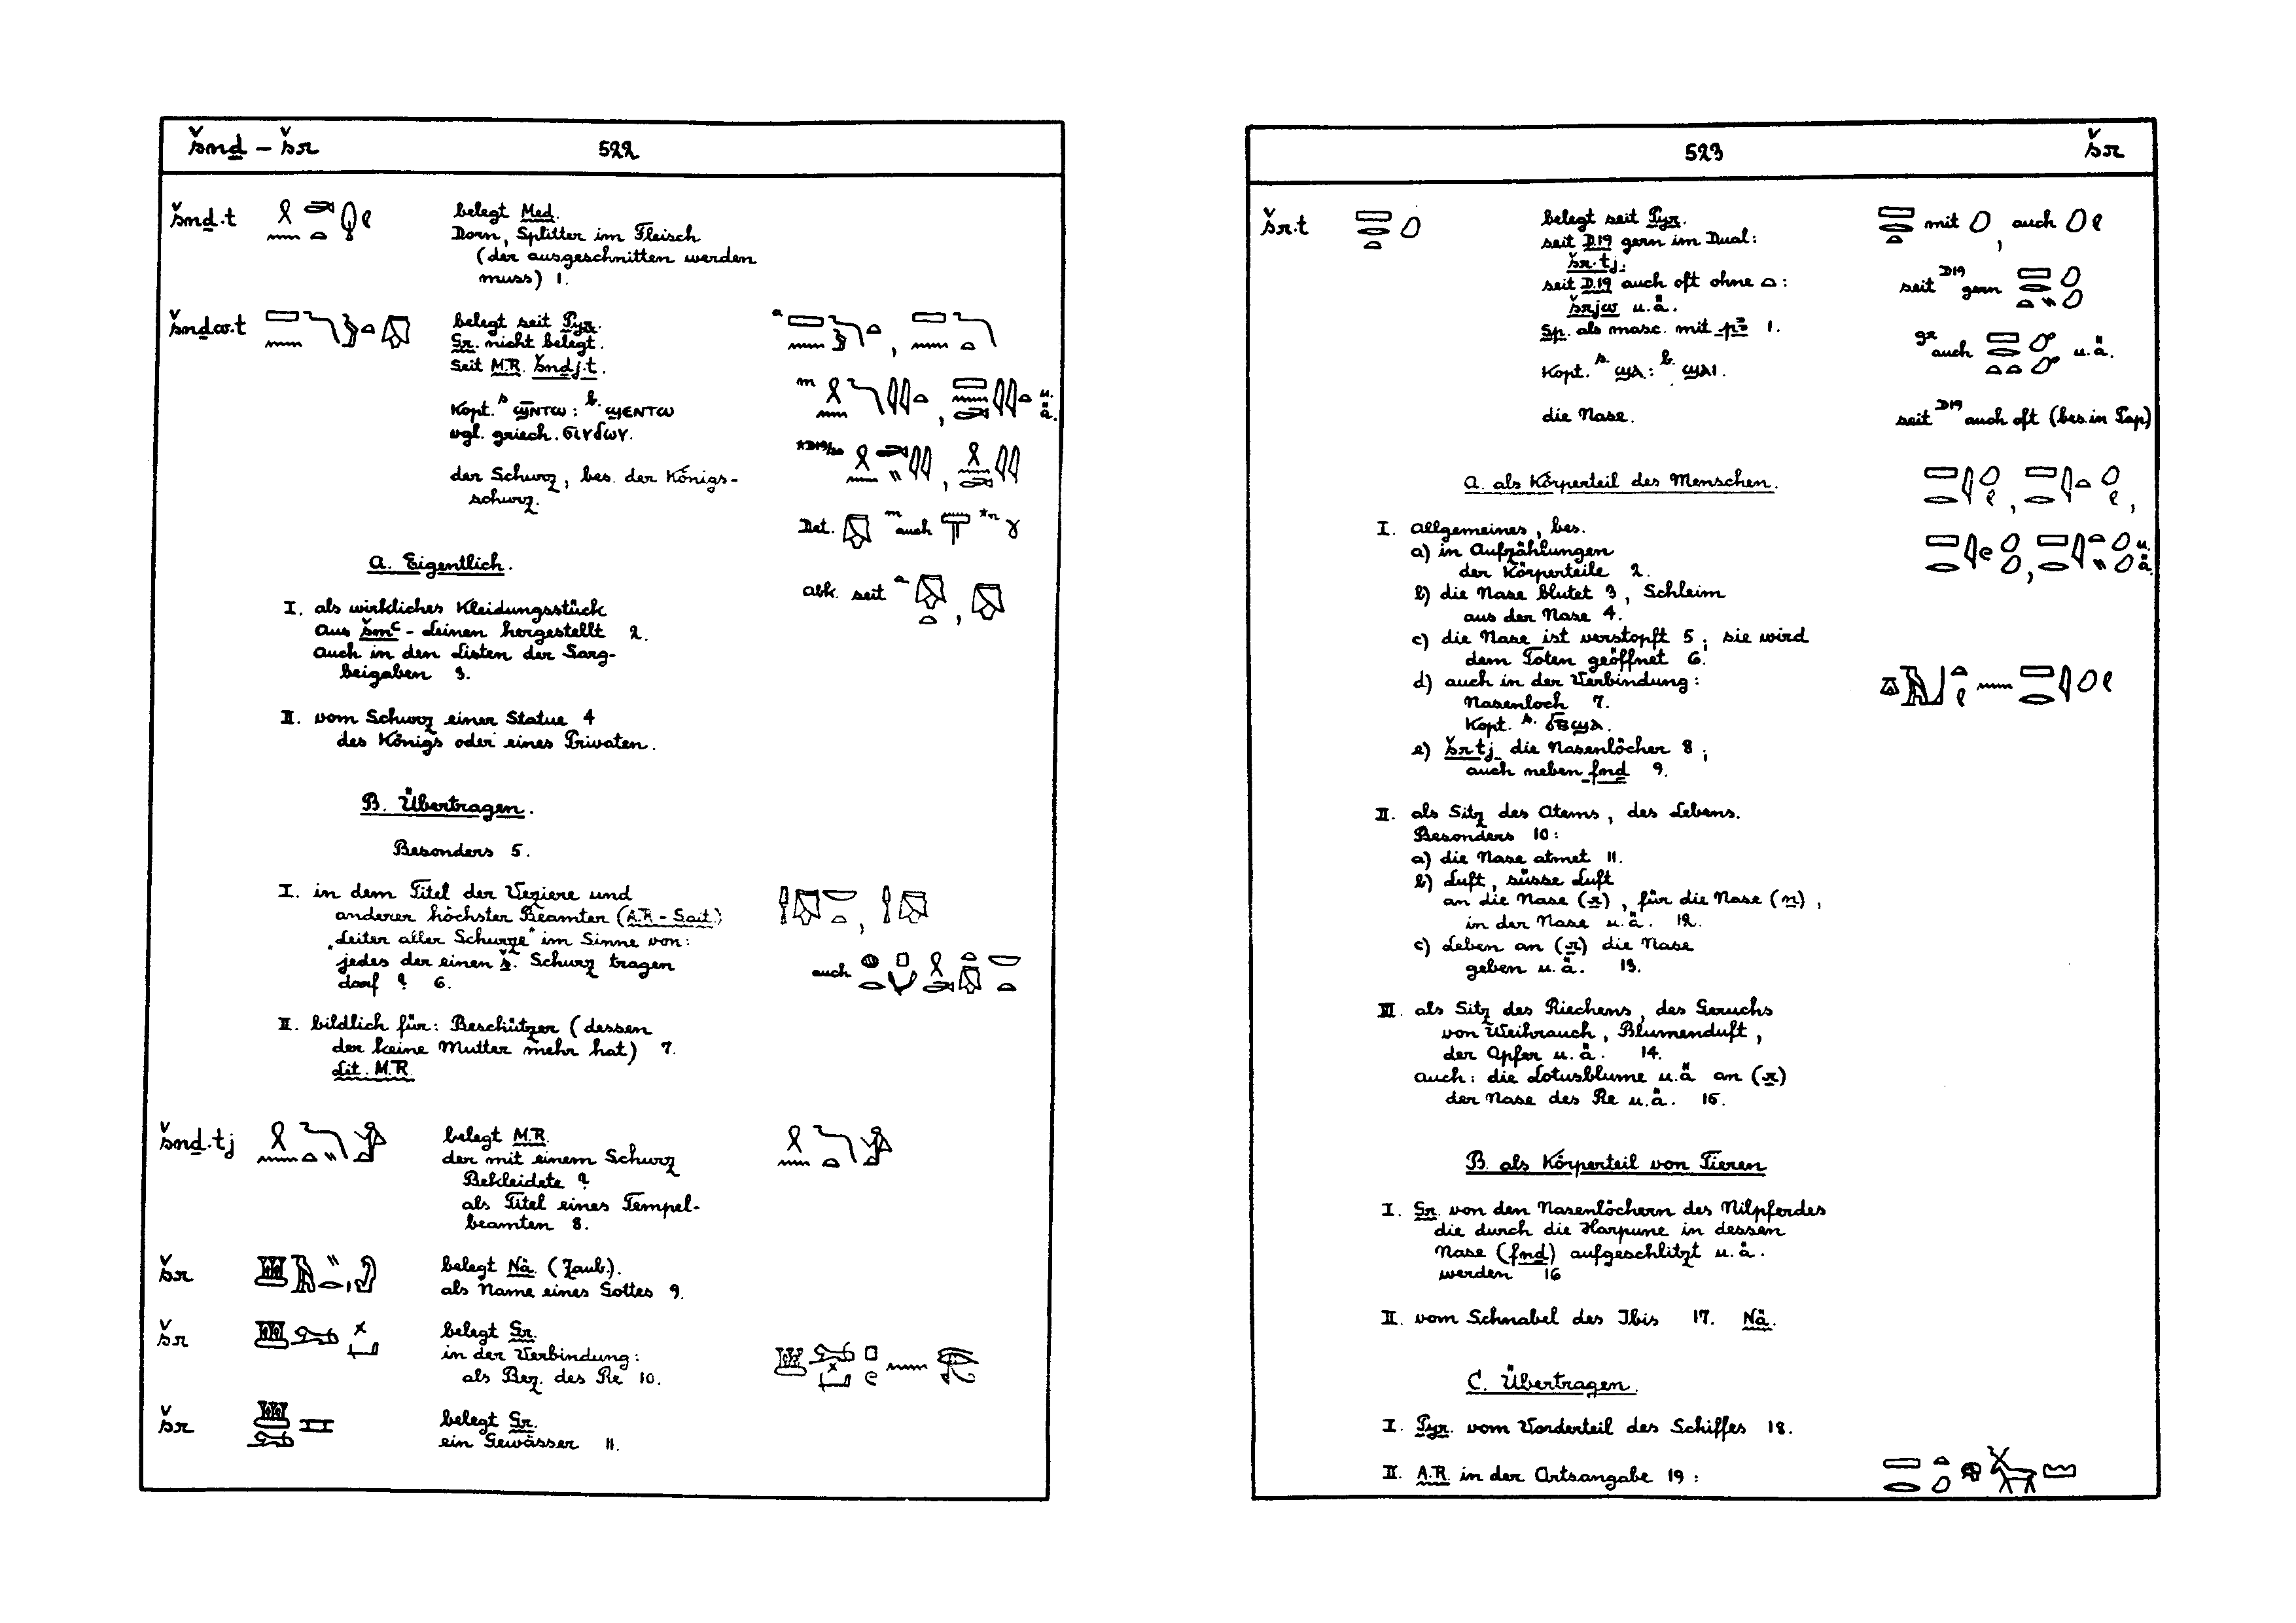 šnḏ – šr 522
šnḏ.t belegt Med.
Dorn, Splitter im Fleisch
(der ausgeschnitten werden
muss) 1.
šnḏw.t belegt seit Pyr.
Gr. nicht belegt.
Seit M.R. šnḏj.t.
Kopt. s. ϣⲛ̄ⲧⲱ : b. ϣⲉⲛⲧⲱ
vgl. griech. σινδων.
der Schurz, bes. der Königs-
schurz.
a
m u.ä.
*D19/20
Det. m auch *n
abk. seit a
A. Eigentlich.
I. als wirkliches Kleidungsstück
aus šmꜥ-Leinen hergestellt 2.
auch in den Listen der Sarg-
beigaben 3.
II. vom Schurz einer Statue 4
des Königs oder eines Privaten.
B. Übertragen.
Besonders 5.
I. in dem Titel der Veziere und
anderer höchster Beamter (A.R - Sait.)
„Leiter aller Schurze" im Sinne von:
jedes der einen š. Schurz tragen
darf ? 6.
auch
II. bildlich für: Beschützer (dessen
der keine Mutter mehr hat) 7.
Lit. M.R.
šnḏ.tj belegt M.R.
der mit einem Schurz
Bekleidete ?
als Titel eines Tempel-
beamten 8.
šr belegt Nä. (Zaub.).
als Name eines Gottes 9.
šr belegt Gr.
in der Verbindung:
als Bez. des Re 10.
šr belegt Gr.
ein Gewässer 11.
523 šr
šr.t belegt seit Pyr.
seit D.19 gern im Dual:
šr.tj.
seit D.19 auch oft ohne
šrjw u.ä.
Sp. als masc. mit pꜣ 1.
Kopt. s. ϣⲁ : b. ϣⲁⲓ.
die Nase.
mit , auch
seit D19 gern
gr auch u.ä.
seit D19 auch oft (bes. in Pap)
u.ä.
A. als Körperteil des Menschen.
I. allgemeines, bes.
a) in Aufzählungen
der Körperteile 2.
b) die Nase blutet 3, Schleim
aus der Nase 4.
c) die Nase ist verstopft 5; sie wird
dem Toten geöffnet 6.
d) auch in der Verbindung:
Nasenloch 7.
Kopt. s. ϭⲃϣⲁ.
e) šrtj die Nasenlöcher 8;
auch neben fnḏ 9.
II. als Sitz des Atems, des Lebens.
Besonders 10:
a) die Nase atmet 11.
b) Luft, süsse Luft
an die Nase (r), für die Nase (n),
in der Nase u.ä. 12.
c) Leben an (r) die Nase
geben u.ä. 13.
III. als Sitz des Riechens, des Geruchs
von Weihrauch, Blumenduft,
der Opfer u.ä. 14.
auch: die Lotusblume u.ä an (r)
der Nase des Re u.ä. 15.
B. als Körperteil von Tieren
I. Gr. von den Nasenlöchern des Nilpferdes
die durch die Harpune in dessen
Nase (fnḏ) aufgeschlitzt u.ä.
werden 16
II. vom Schnabel des Ibis 17. Nä.
C. Übertragen.
I. Pyr. vom Vorderteil des Schiffes 18.
II. A.R. in der Ortsangabe 19: